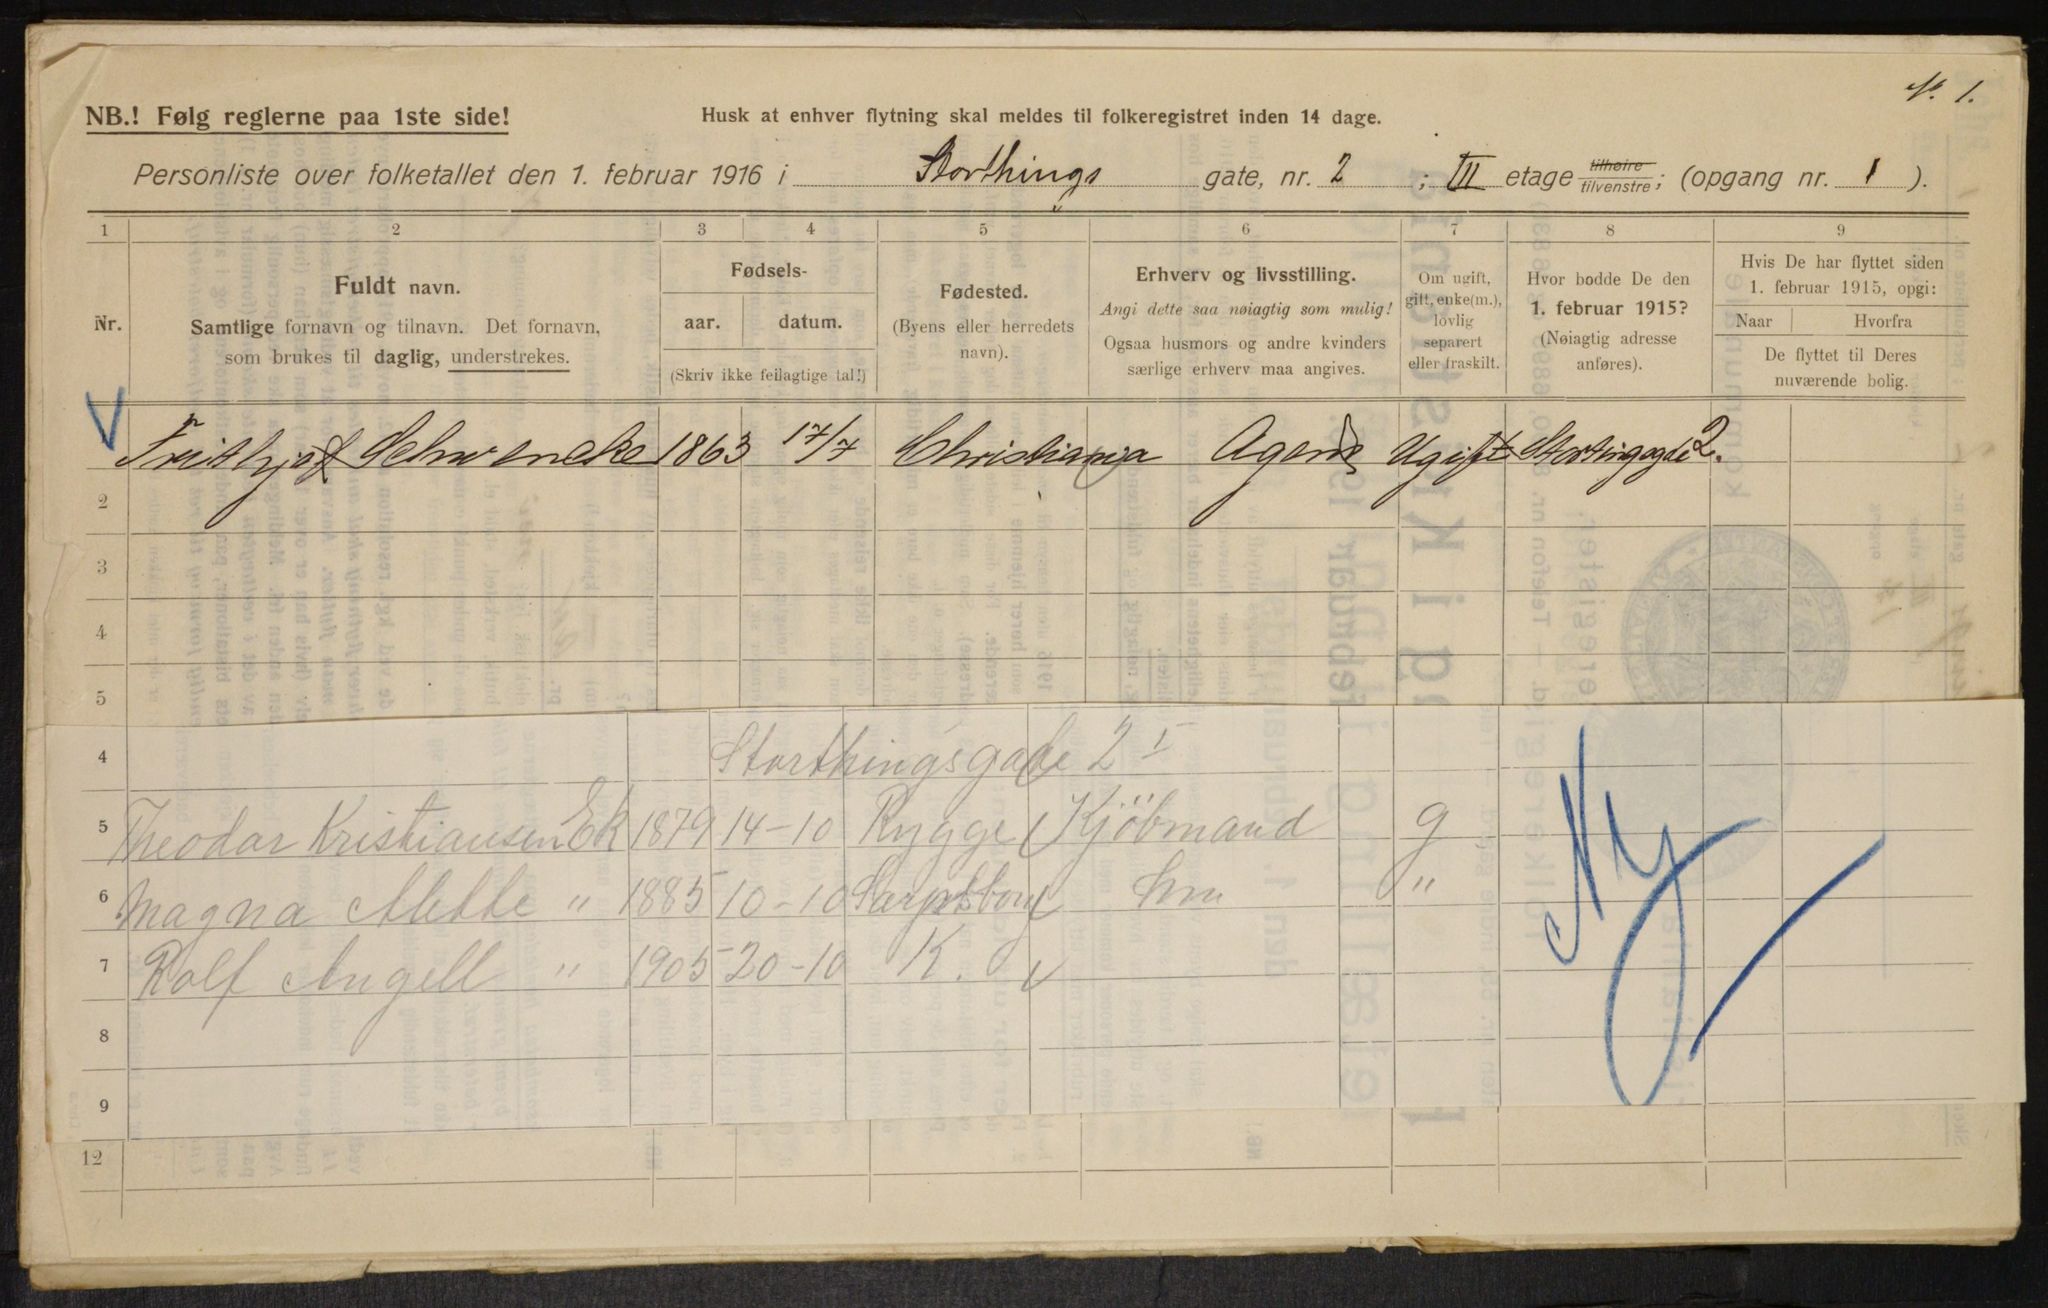 № 1.
NB.! Følg reglerne paa 1ste side!
Husk at enhver flytning skal meldes til folkeregistret inden 14 dage.
Personliste over folketallet den 1. februar 1916 i Storthings gate, nr. 2 ; III etage tilhøire tilvenstre; (opgang nr. 1 ).
1 2 3 4 5 6 7 8 9
Nr.
Fuldt navn.
Samtlige fornavn og tilnavn. Det fornavn,
som brukes til daglig, understrekes.
Fødsels-
aar. datum.
(Skriv ikke feilagtige tal!)
Fødested.
(Byens eller herredets
navn).
Erhverv og livsstilling.
Angi dette saa nøiagtig som mulig!
Ogsaa husmors og andre kvinders
særlige erhverv maa angives.
Om ugift,
gift, enke(m.),
lovlig
separert
eller fraskilt.
Hvor bodde De den
1. februar 1915?
(Nøiagtig adresse
anføres).
Hvis De har flyttet siden
1. februar 1915, opgi:
Naar Hvorfra
De flyttet til Deres
nuværende bolig.
Frithjof Schwencke 1863 17/7 Christiania Agent Ugift Stortingsgade 2.
2
3
4
5
4 Storthingsgade 2 I
5 Theodor Kristiansen Ek 1879 14-10 Rygge Kjöbmand g
6 Magna Mette " 1885 10-10 Sarpsborg hm "
7 Rolf Angell " 1905 20-10 K.
Ny
8
9
12